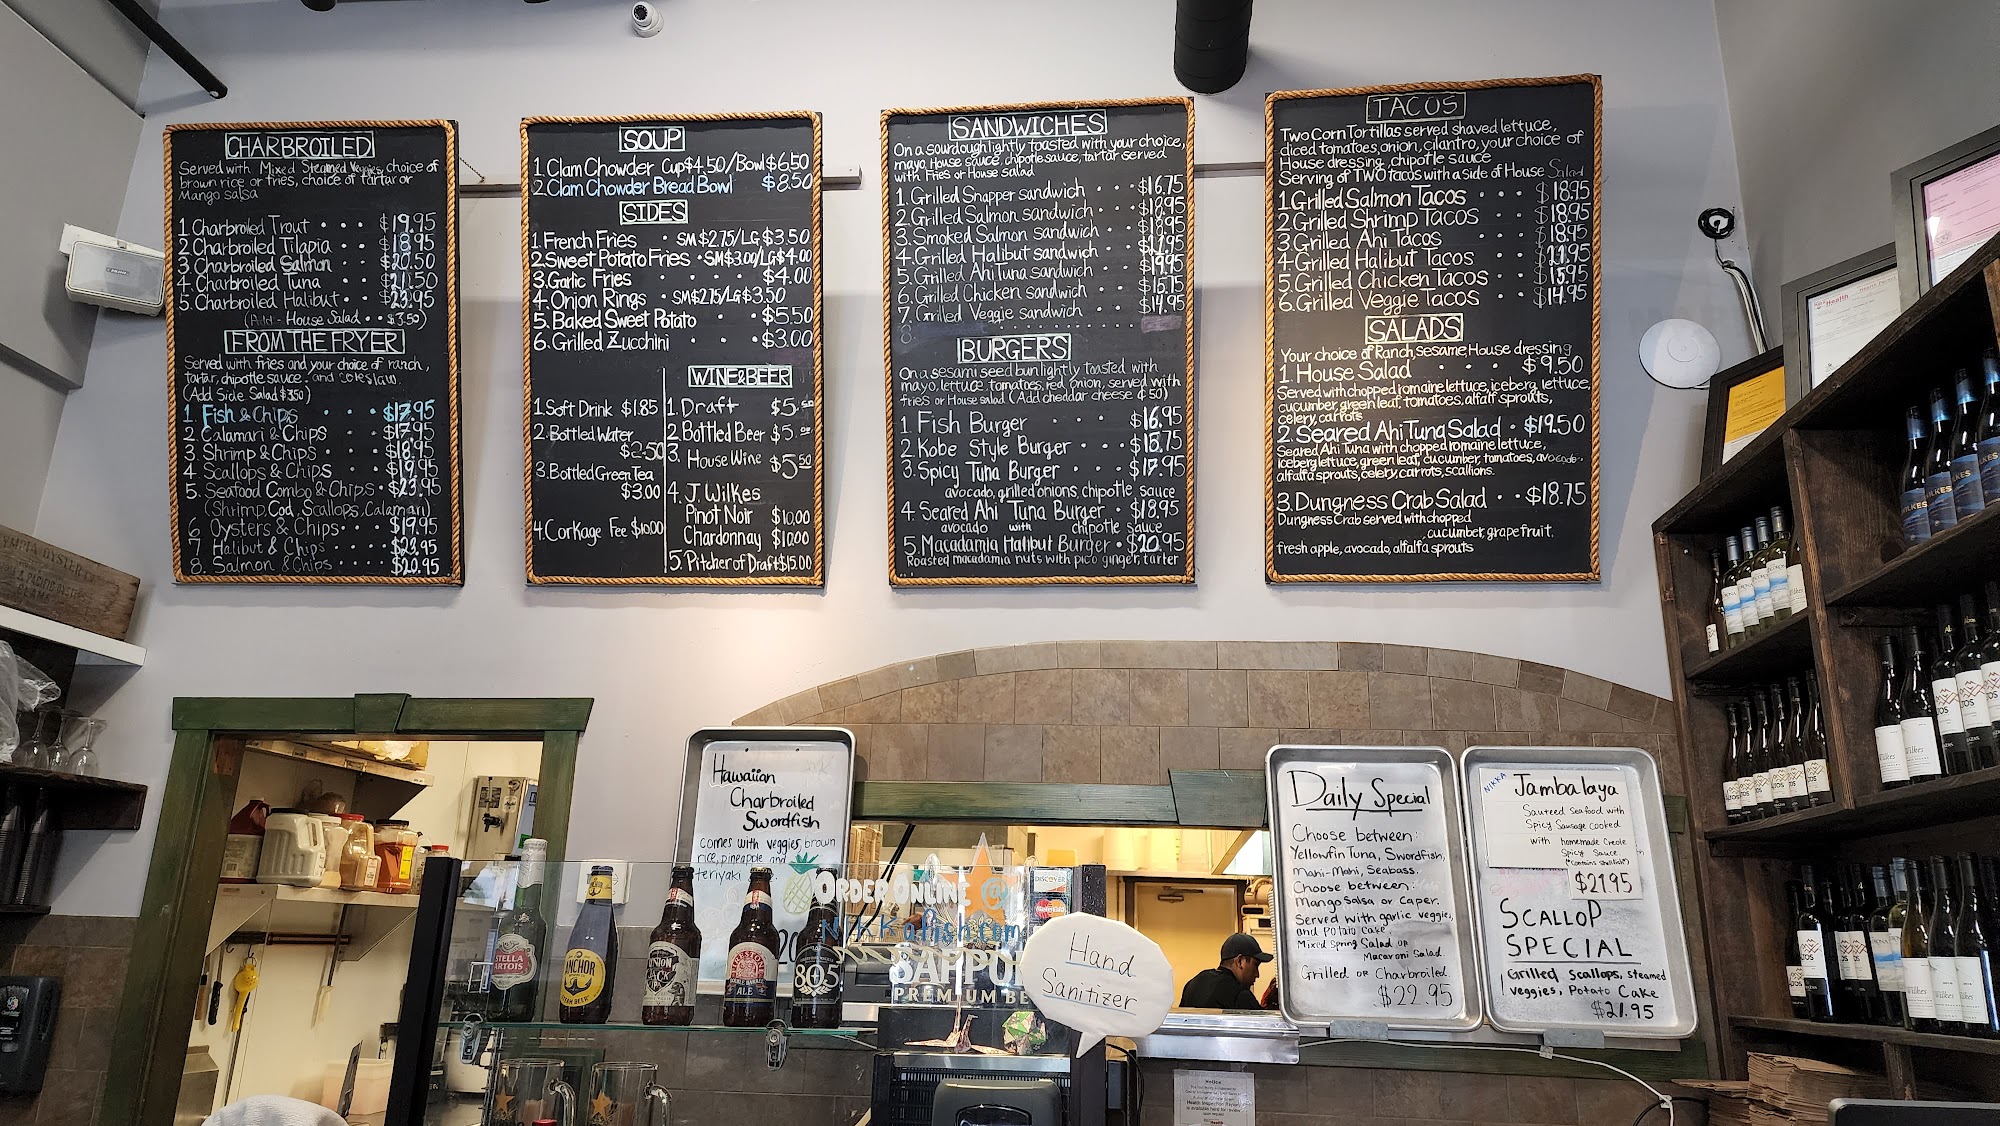 CHARBROILED
Served with Mixed Steamed Veggies, choice of
brown rice or fries, choice of tartar or
Mango salsa
1. Charbroiled Trout · · · $19.95
2. Charbroiled Tilapia · · $18.95
3. Charbroiled Salmon · · $20.50
4. Charbroiled Tuna · · $21.50
5. Charbroiled Halibut · · $23.95
(Add - House Salad · · $3.50)
FROM THE FRYER
Served with fries and your choice of ranch,
tartar, chipotle sauce. and coleslaw.
(Add Side Salad $3.50)
1. Fish & Chips · · · $17.95
2. Calamari & Chips · · $17.95
3. Shrimp & Chips · · · $18.95
4. Scallops & Chips · · $19.95
5. Seafood Combo & Chips · $23.95
(Shrimp, Cod, Scallops, Calamari)
6 Oysters & Chips · · · $19.95
7 Halibut & Chips · · · $23.95
8. Salmon & Chips · · · $20.95
SOUP
1. Clam Chowder Cup $4.50/Bowl $6.50
2. Clam Chowder Bread Bowl $8.50
SIDES
1. French Fries · SM $2.75/LG $3.50
2. Sweet Potato Fries · SM $3.00/LG $4.00
3. Garlic Fries · · · $4.00
4. Onion Rings · SM $2.75/LG $3.50
5. Baked Sweet Potato · · $5.50
6. Grilled Zucchini · · · $3.00
1. Soft Drink $1.85
2. Bottled Water
$2.50
3. Bottled Green Tea
$3.00
4. Corkage Fee $10.00
WINE & BEER
1. Draft $5.50
2. Bottled Beer $5.00
3. House Wine $5.50
4. J. Wilkes
Pinot Noir $10.00
Chardonnay $10.00
5. Pitcher of Draft $15.00
SANDWICHES
On a sourdough lightly toasted with your choice,
mayo, House sauce, chipotle sauce, tartar served
with Fries or House salad
1. Grilled Snapper sandwich · · $16.75
2. Grilled Salmon sandwich · · $18.95
3. Smoked Salmon sandwich · · $18.95
4. Grilled Halibut sandwich · ·
5. Grilled Ahi Tuna sandwich · · $19.95
6. Grilled Chicken sandwich · · $15.75
7. Grilled Veggie sandwich · · $14.95
8.
BURGERS
On a sesami seed bun lightly toasted with
mayo, lettuce, tomatoes, red onion, served with
fries or House salad (Add cheddar cheese $.50)
1. Fish Burger · · $16.95
2. Kobe Style Burger · · · $18.75
3. Spicy Tuna Burger · · · $17.95
avocado, grilled onions, chipotle sauce
4. Seared Ahi Tuna Burger · $18.95
avocado with chipotle sauce
5. Macadamia Halibut Burger · $20.95
Roasted macadamia nuts with pico ginger, tarter
TACOS
Two Corn Tortillas served shaved lettuce,
diced tomatoes, onion, cilantro, your choice of
House dressing, chipotle sauce
Serving of TWO tacos with a side of House Salad
1 Grilled Salmon Tacos · · $18.95
2 Grilled Shrimp Tacos · · $18.95
3 Grilled Ahi Tacos · · $18.95
4 Grilled Halibut Tacos · ·
5. Grilled Chicken Tacos · · $15.95
6. Grilled Veggie Tacos · · $14.95
SALADS
Your choice of Ranch, Sesame, House dressing
1. House Salad · · · · $9.50
Served with chopped romaine lettuce, iceberg, lettuce,
cucumber, green leaf, tomatoes, alfalfa sprouts,
celery, carrots
2. Seared Ahi Tuna Salad · $19.50
Seared Ahi Tuna with chopped romaine lettuce,
iceberg lettuce, green leaf, cucumber, tomatoes, avocado,
alfalfa sprouts, celery, carrots, scallions.
3. Dungness Crab Salad · · $18.75
Dungness Crab served with chopped
, cucumber, grapefruit,
fresh apple, avocado, alfalfa sprouts
Hawaiian
Charbroiled
Swordfish
comes with veggies, brown
rice, pineapple and
teriyaki
Daily Special
Choose between:
Yellowfin Tuna, Swordfish,
Mahi-Mahi, Seabass.
Choose between:
Mango Salsa or Caper.
Served with garlic veggies,
and Potato Cake
Mixed Spring Salad or
Macaroni Salad.
Grilled or Charbroiled
$22.95
NIKKA
Jambalaya
Sauteed Seafood with
Spicy Sausage cooked
with homemade Creole
Spicy Sauce
(*contains shellfish*)
$21.95
SCALLOP
SPECIAL
Grilled scallops, steamed
veggies, Potato Cake
$21.95
ORDER ONLINE @
NIKKafish.com
SAPPO
PREMIUM BE
Hand
Sanitizer
STELLA
ARTOIS
ANCHOR
STEAM BEER
UNION
JACK
FIRESTONE
ALE
805
DISCOVER
MasterCard
Notice
Health